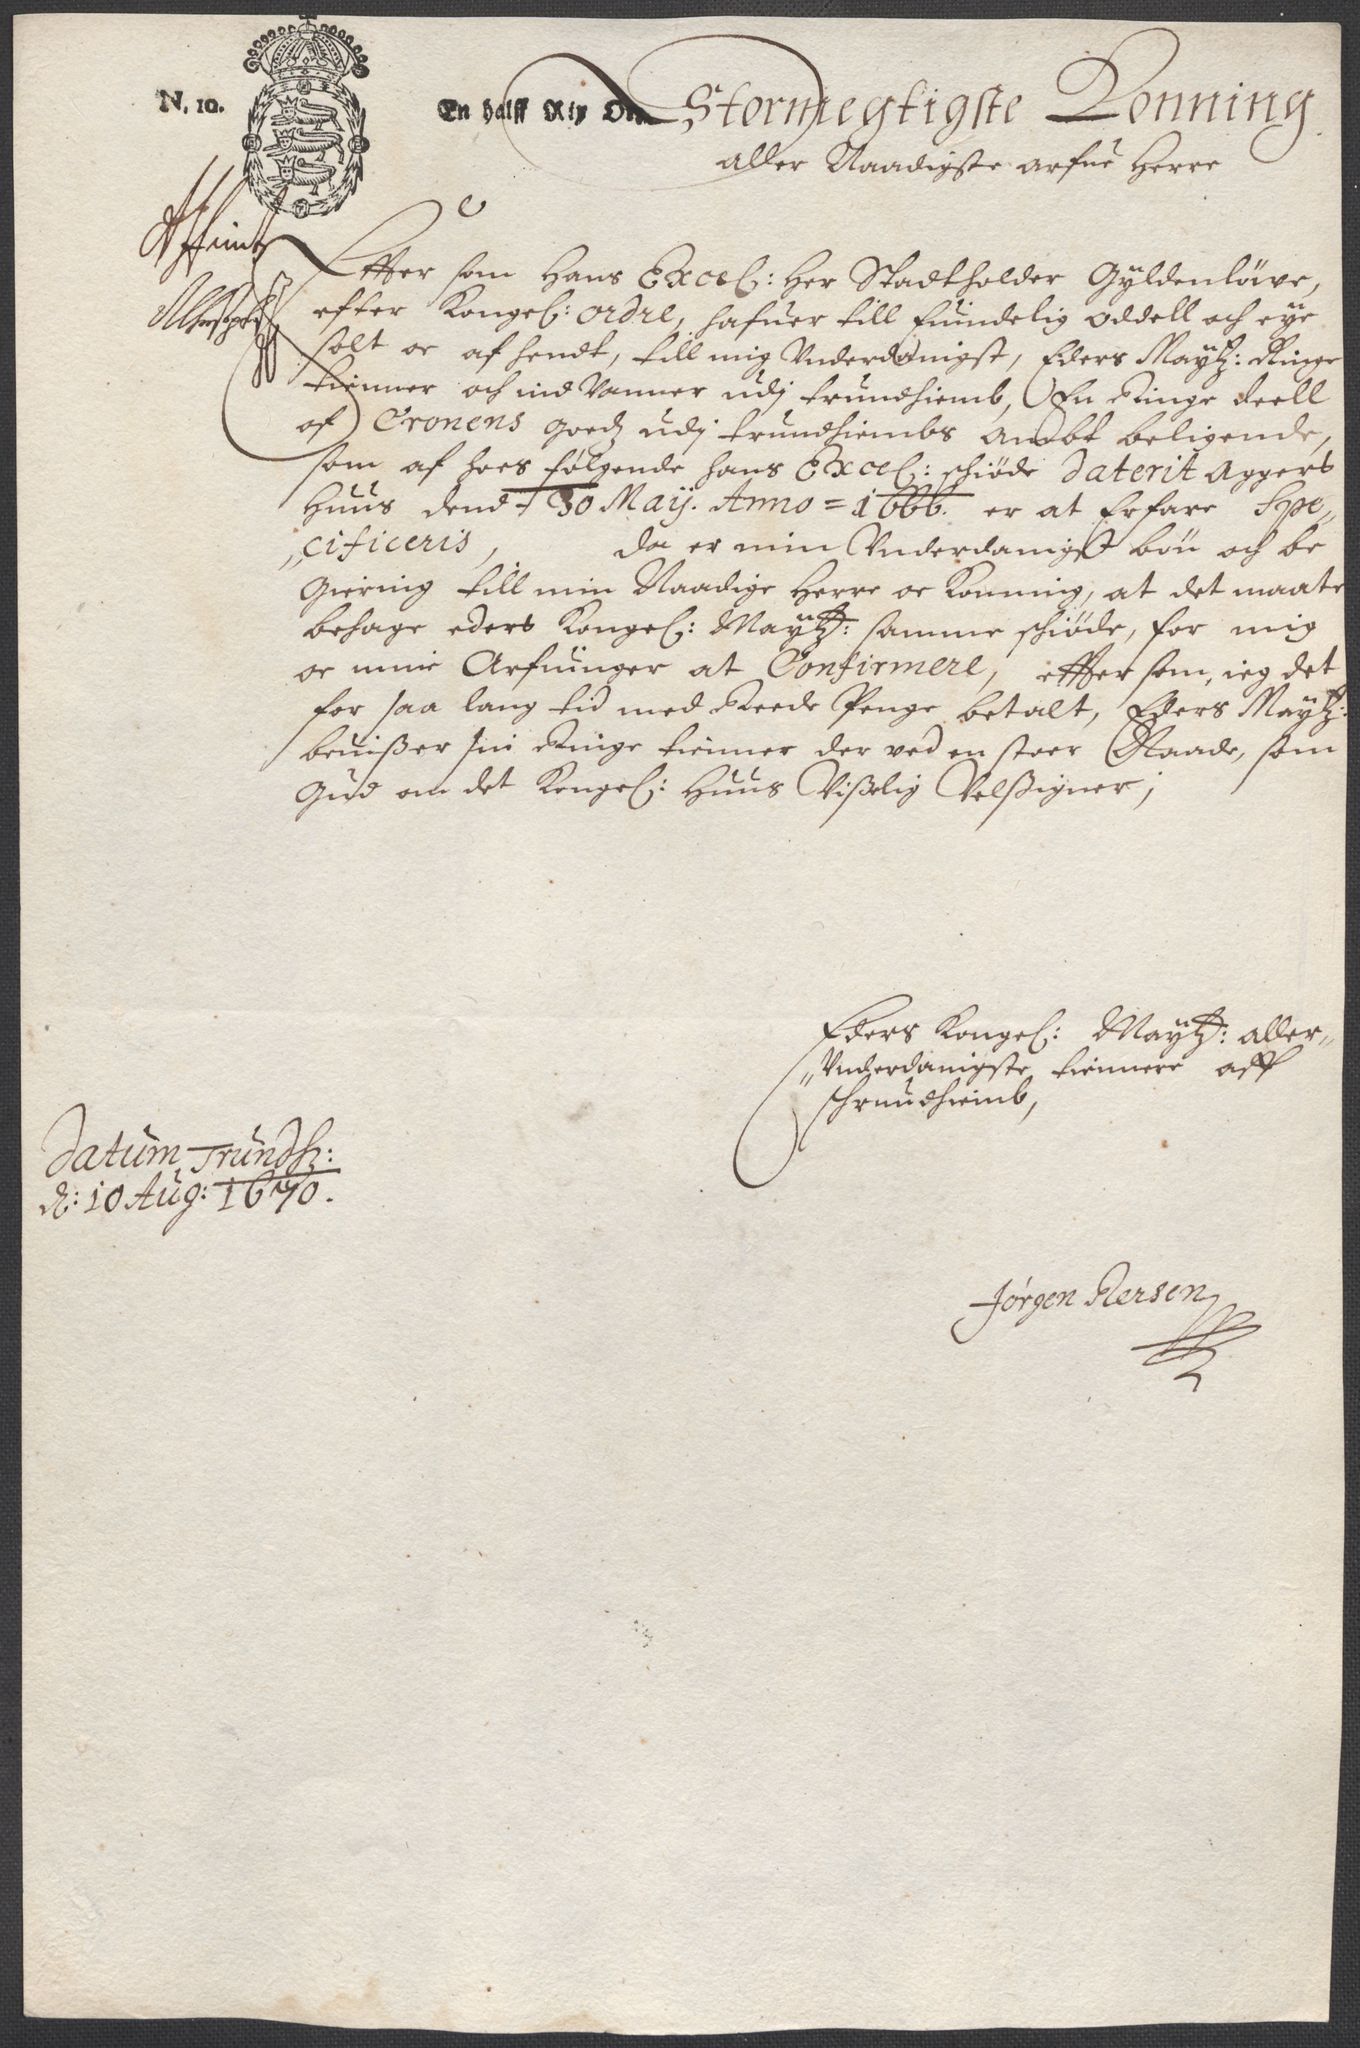 N. 10.
En halff Rix
Stormegtigste Konning
aller Naadigste arfue Herre
Effter som Hans Excel: Her Stadtholder Gÿldenlöwe,
efter Kongel: ordre, hafuer till Euindelig oddell och eÿe
solt oc af hendt, till mig Vnderdanigst, Eders Maÿtz: Ringe
tienner och ind Vanner udj trundhiemb, En Ringe deell
af Cronens goedz udj trundhiembs Ambt beligende,
som af hoes følgende hans Excel: schiöde Daterit Aggers
Huus dend 30 Maÿ. Anno = 1666. er at Erfare Spe„
„cificeris, da er min Vnderdanigst bön och be
giering till min Naadige Herre oc Konning, at det maate
behage eders Kongel: Maÿtz: samme schiöde, for mig
oc mine Arfuinger at Confirmere, effter som, ieg det
for saa lang tid med Reede Penge betalt, Eders Maÿtz:
beuißer sin Ringe tienner der ved en stoer Naade, som
Gud om det Kongel: Huus Vißelig Velßigner;
Eders Kongel: Maÿtz: aller„
„Vnderdanigste tiennere aff
Datum Trundh:
d: 10 Aug: 1670.
Jörgen